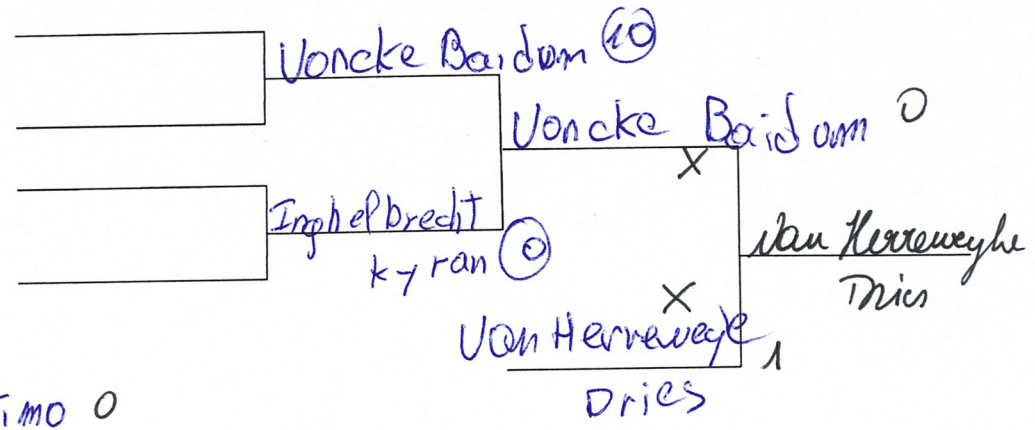 Voncke Baidum 10
Voncke Baidum 0
Inghelbrecht
kyran 0
Van Herreweghe
Dries
X
X
Van Herreweje 1
Dries
imo 0